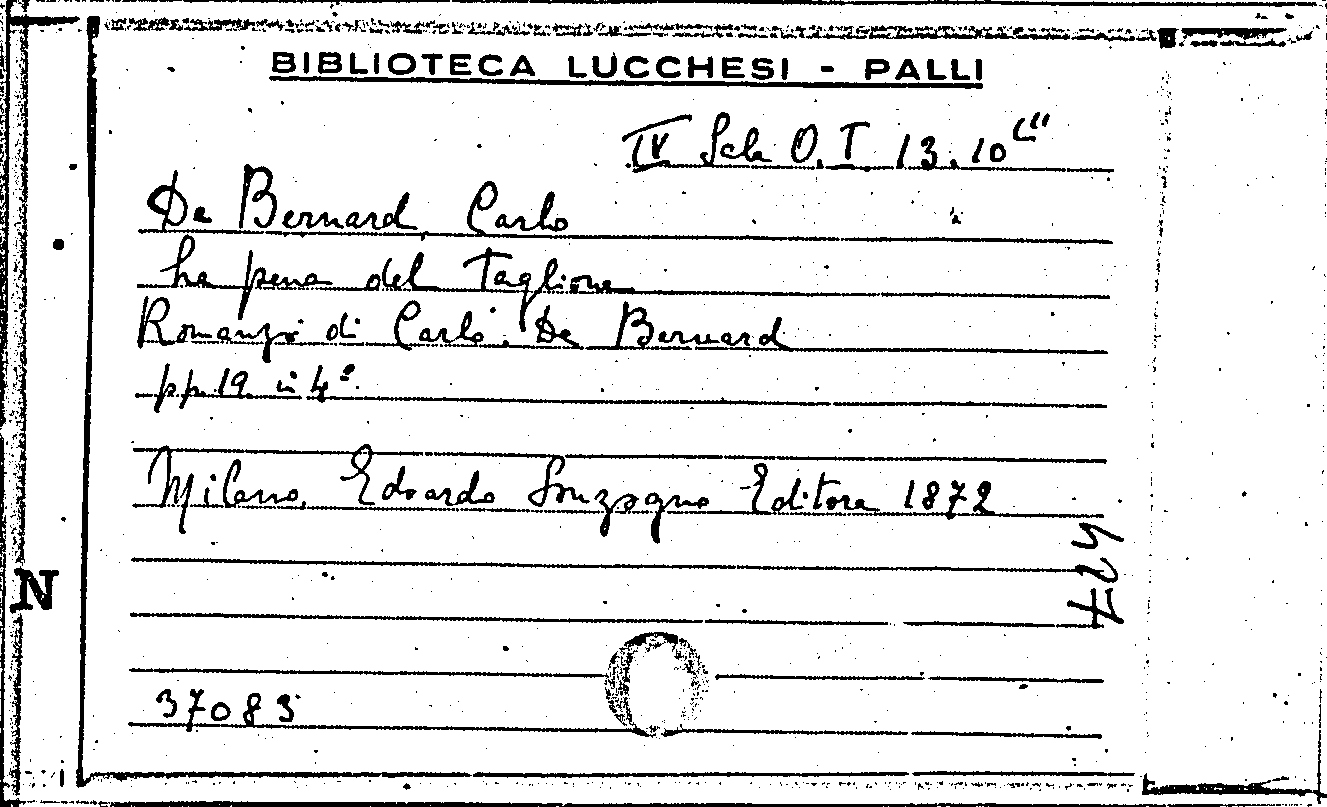 BIBLIOTECA LUCCHESI - PALLI
IV Sala O.I 13.10
De Bernard, Carlo
La pena del Taglione
Romanzo di Carlo De Bernard
pp. 19 in 4º
Milano, Edoardo Sonzogno Editore 1872
N
37083